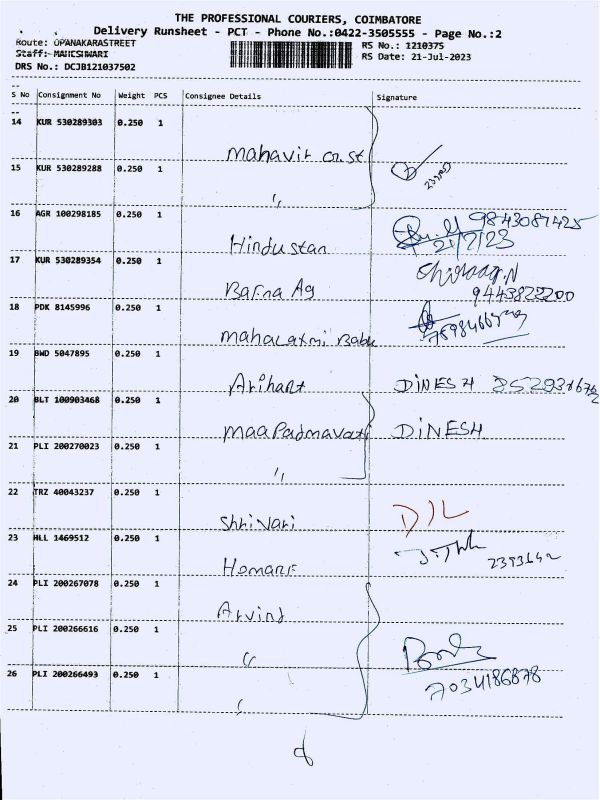 THE PROFESSIONAL COURIERS, COIMBATORE
Delivery Runsheet - PCT - Phone No.:0422-3505555 - Page No.:2
Route: OPANAKARASTREET RS No.: 1210375
Staff: MAHESHWARI RS Date: 21-Jul-2023
DRS No.: DCJB121037502
S No Consignment No Weight PCS Consignee Details Signature
14 KUR 530289303 0.250 1 Mahavir cn.st
15 KUR 530289288 0.250 1 "
16 AGR 100298185 0.250 1 Hindustan 9843087425
21/7/23
17 KUR 530289354 0.250 1 Bafna Ag Chiraag.N
9443822200
18 PDK 8145996 0.250 1 Mahalaxmi
19 BWD 5047895 0.250 1 Arihant DINESH
20 BLT 100903468 0.250 1 Maa Padmavati DINESH
21 PLI 200270023 0.250 1 "
22 TRZ 40043237 0.250 1 Shrivari
23 HLL 1469512 0.250 1
24 PLI 200267078 0.250 1 Arvind
25 PLI 200266616 0.250 1 "
26 PLI 200266493 0.250 1 7034186878